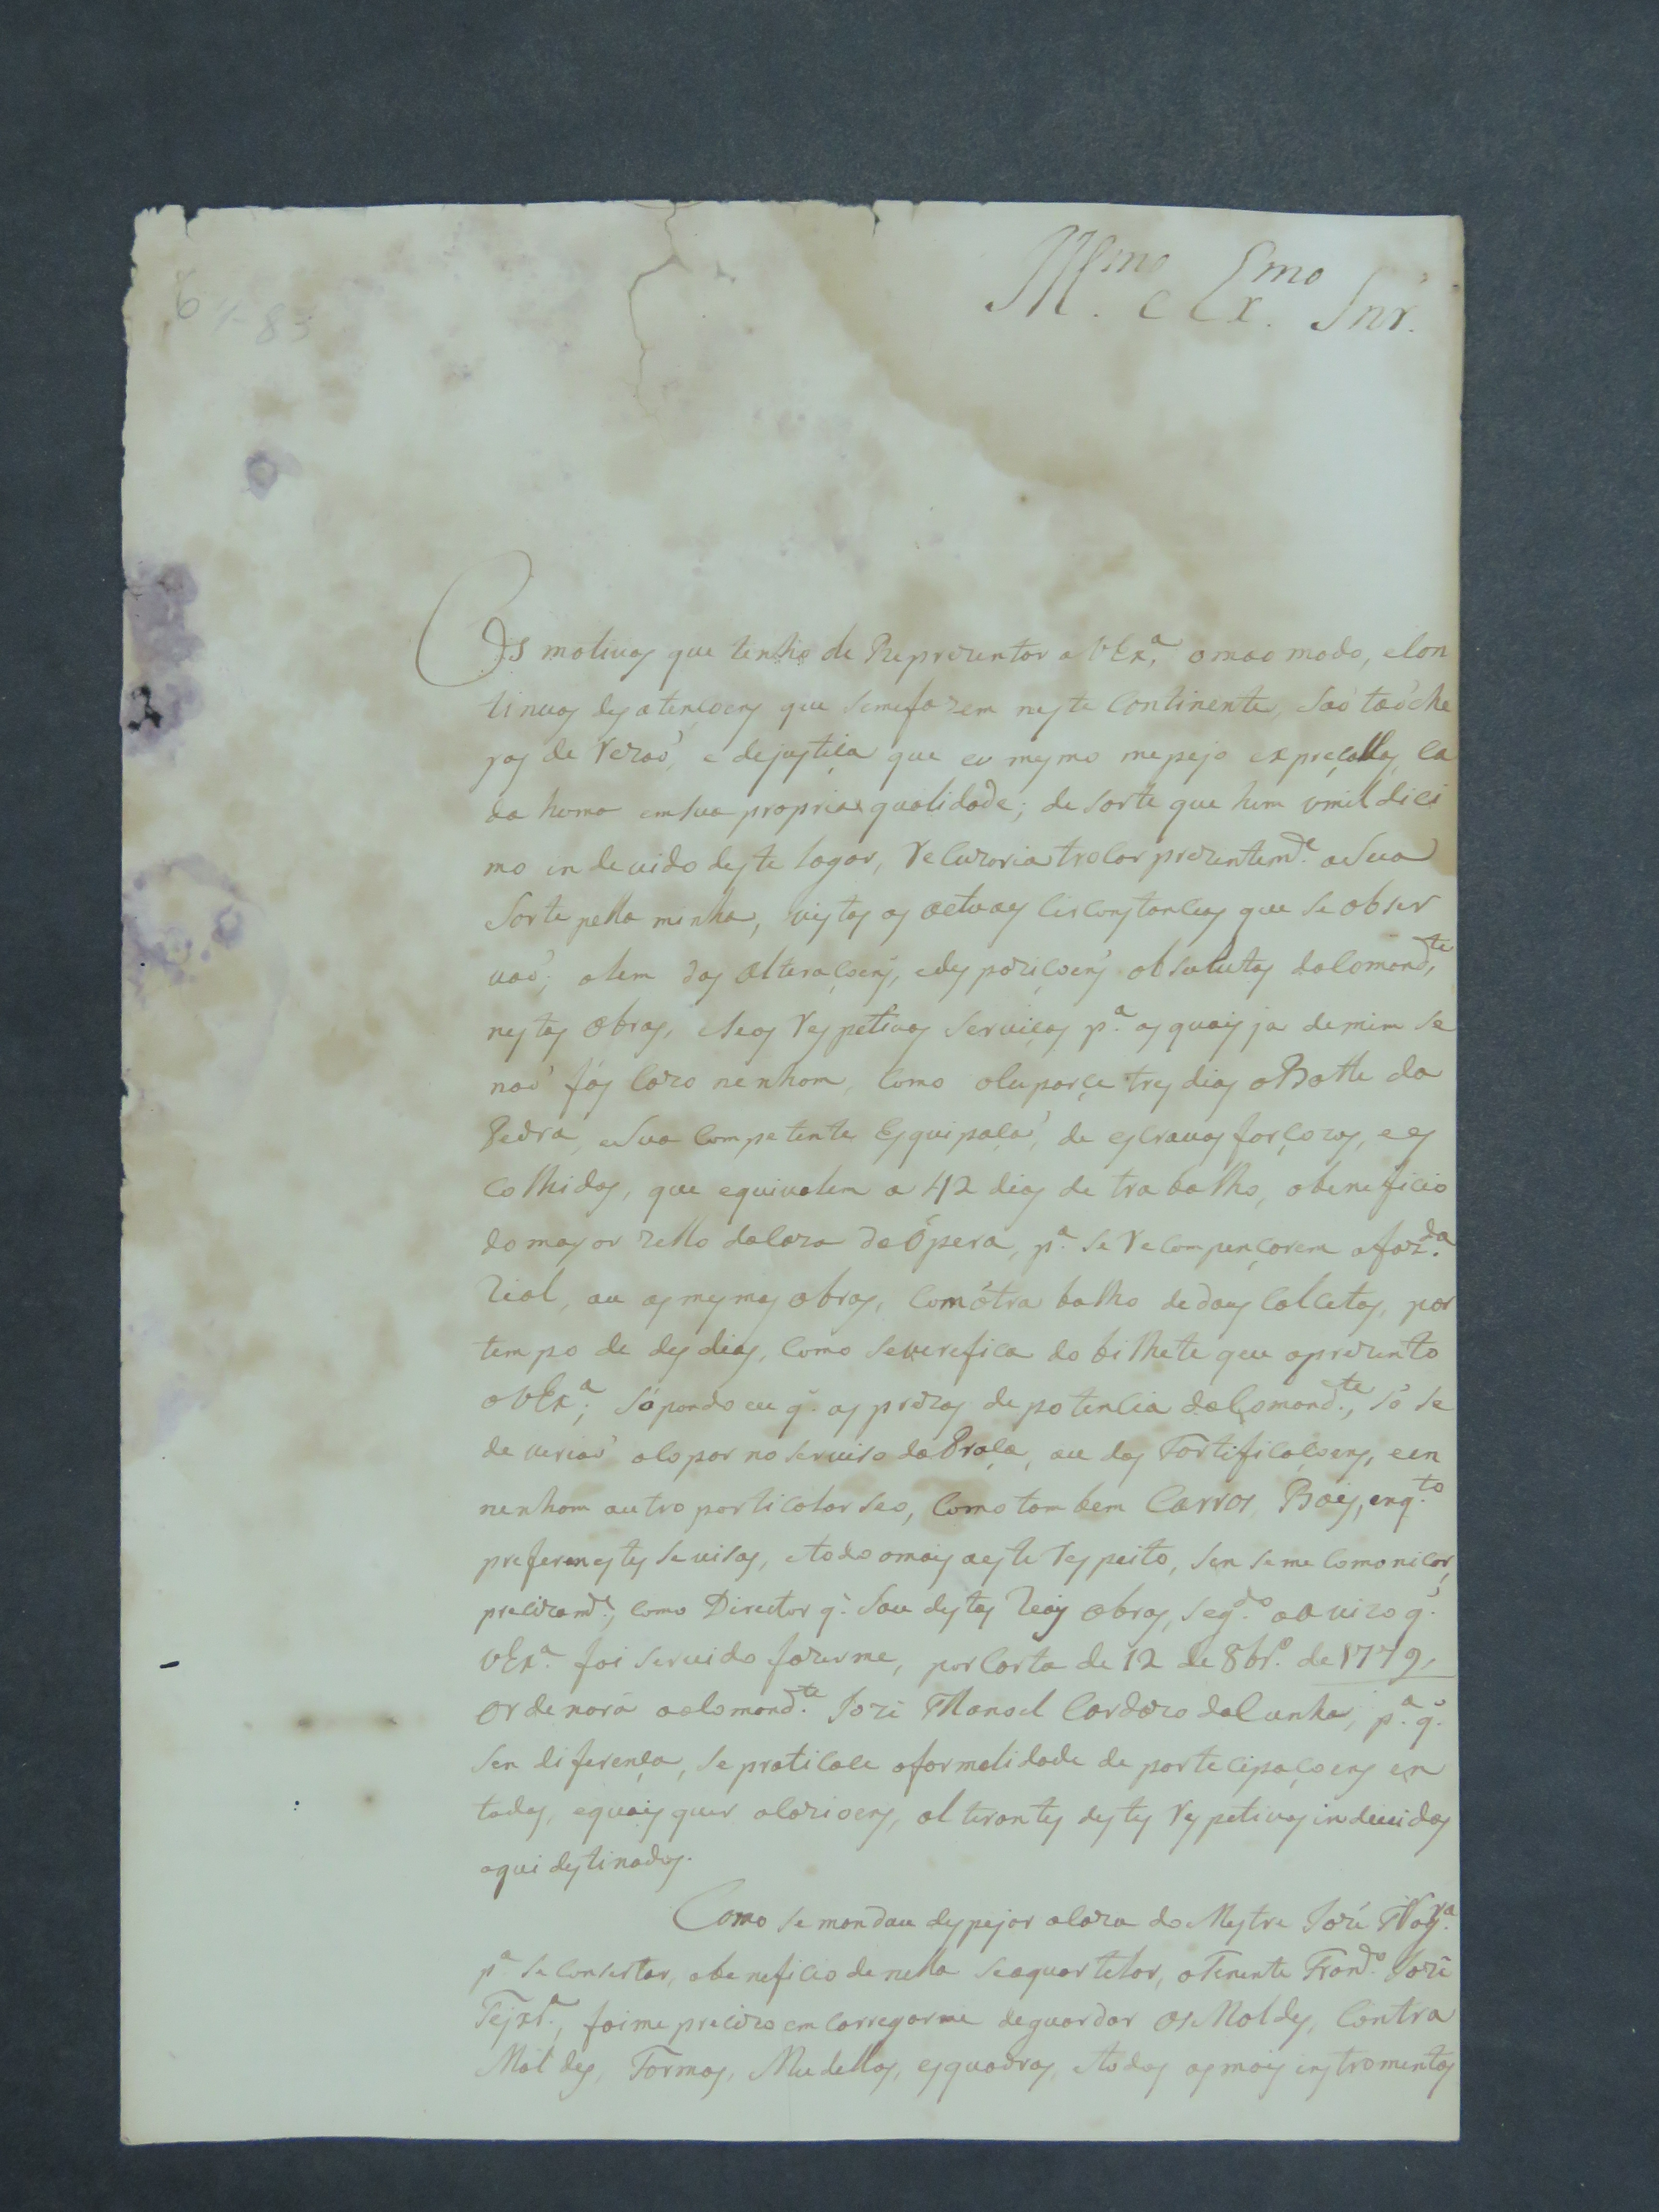 64-83
Ill.mo e Ex.mo Snr.
Os motivos que tenho de Reprezentar a VEx.a, o mao modo, e Con
tinuas desatençoens que se me fazem neste Continente, saó taó che
yas de Rezaó, e de justiça que eu mesmo me pejo expreçallas, Ca
da huma em sua propria qualidade; de sorte que hum
mo individo deste lugar, Recuzaria trocar prezentem.e a Sua
Sorte pella minha, vistas as actuaes Circonstancias que se obser
vaó; alem das Alteraçoens, e despoziçoens absulutas do Comand.te
nestas Obras, e seos Respetivos Serviços p.a as quais ja de mim se
naó fás Cazo nenhom, Como ocuparce tres dias o Botte da
Pedra, e Sua Competente Esquipaçaó, de escravos forçozos, e es
colhidos, que equivalem a 42 dias de trabalho, a beneficio
do mayor zello da Caza da Ópera, p.a se Recompençarem a faz.da
Rial, au as mesmas obras, Com ó trabalho de dous Calcetas, por
tempo de des dias, Como se verefica do bilhete que aprezento
a VEx.a; Sópondo eu q. as prezas de potencia do Comand.te, só se
deveriaó ocopar no serviso da Praça, au das Fortificaçoens, e en
nenhom autro particolar seo, Como tambem Carros, Bois, enq.to
preferen estes servisos, e todo o mais a este Respeito, sen se me Comonicar,
precizam.e, Como Director q. Sou destas Reais Obras, Seg.do o avizo q.
VEx.a foi servido fazerme, por Carta de 12 de 8br.o de 1779,
Ordenará ao Comand.te Jozé Manoel Cardozo da Cunha, p.a q.
sen diferença, se praticace a formalidade de partecipaçoens en
todas, e quais quer ocazioens, alterantes destes Respetivos individos
aqui destinados.
Como se mandau despejar a Caza do Mestre Jozé
p.a se Consertar, a beneficio de nella se aquartelar, o Tenente Fran.co Jozé
Teix.a, foime precizo emcarregarme de guardar os Moldes, Contra
Moldes, Formas, Mudellos, esquadras, e todos os mais enstromentos